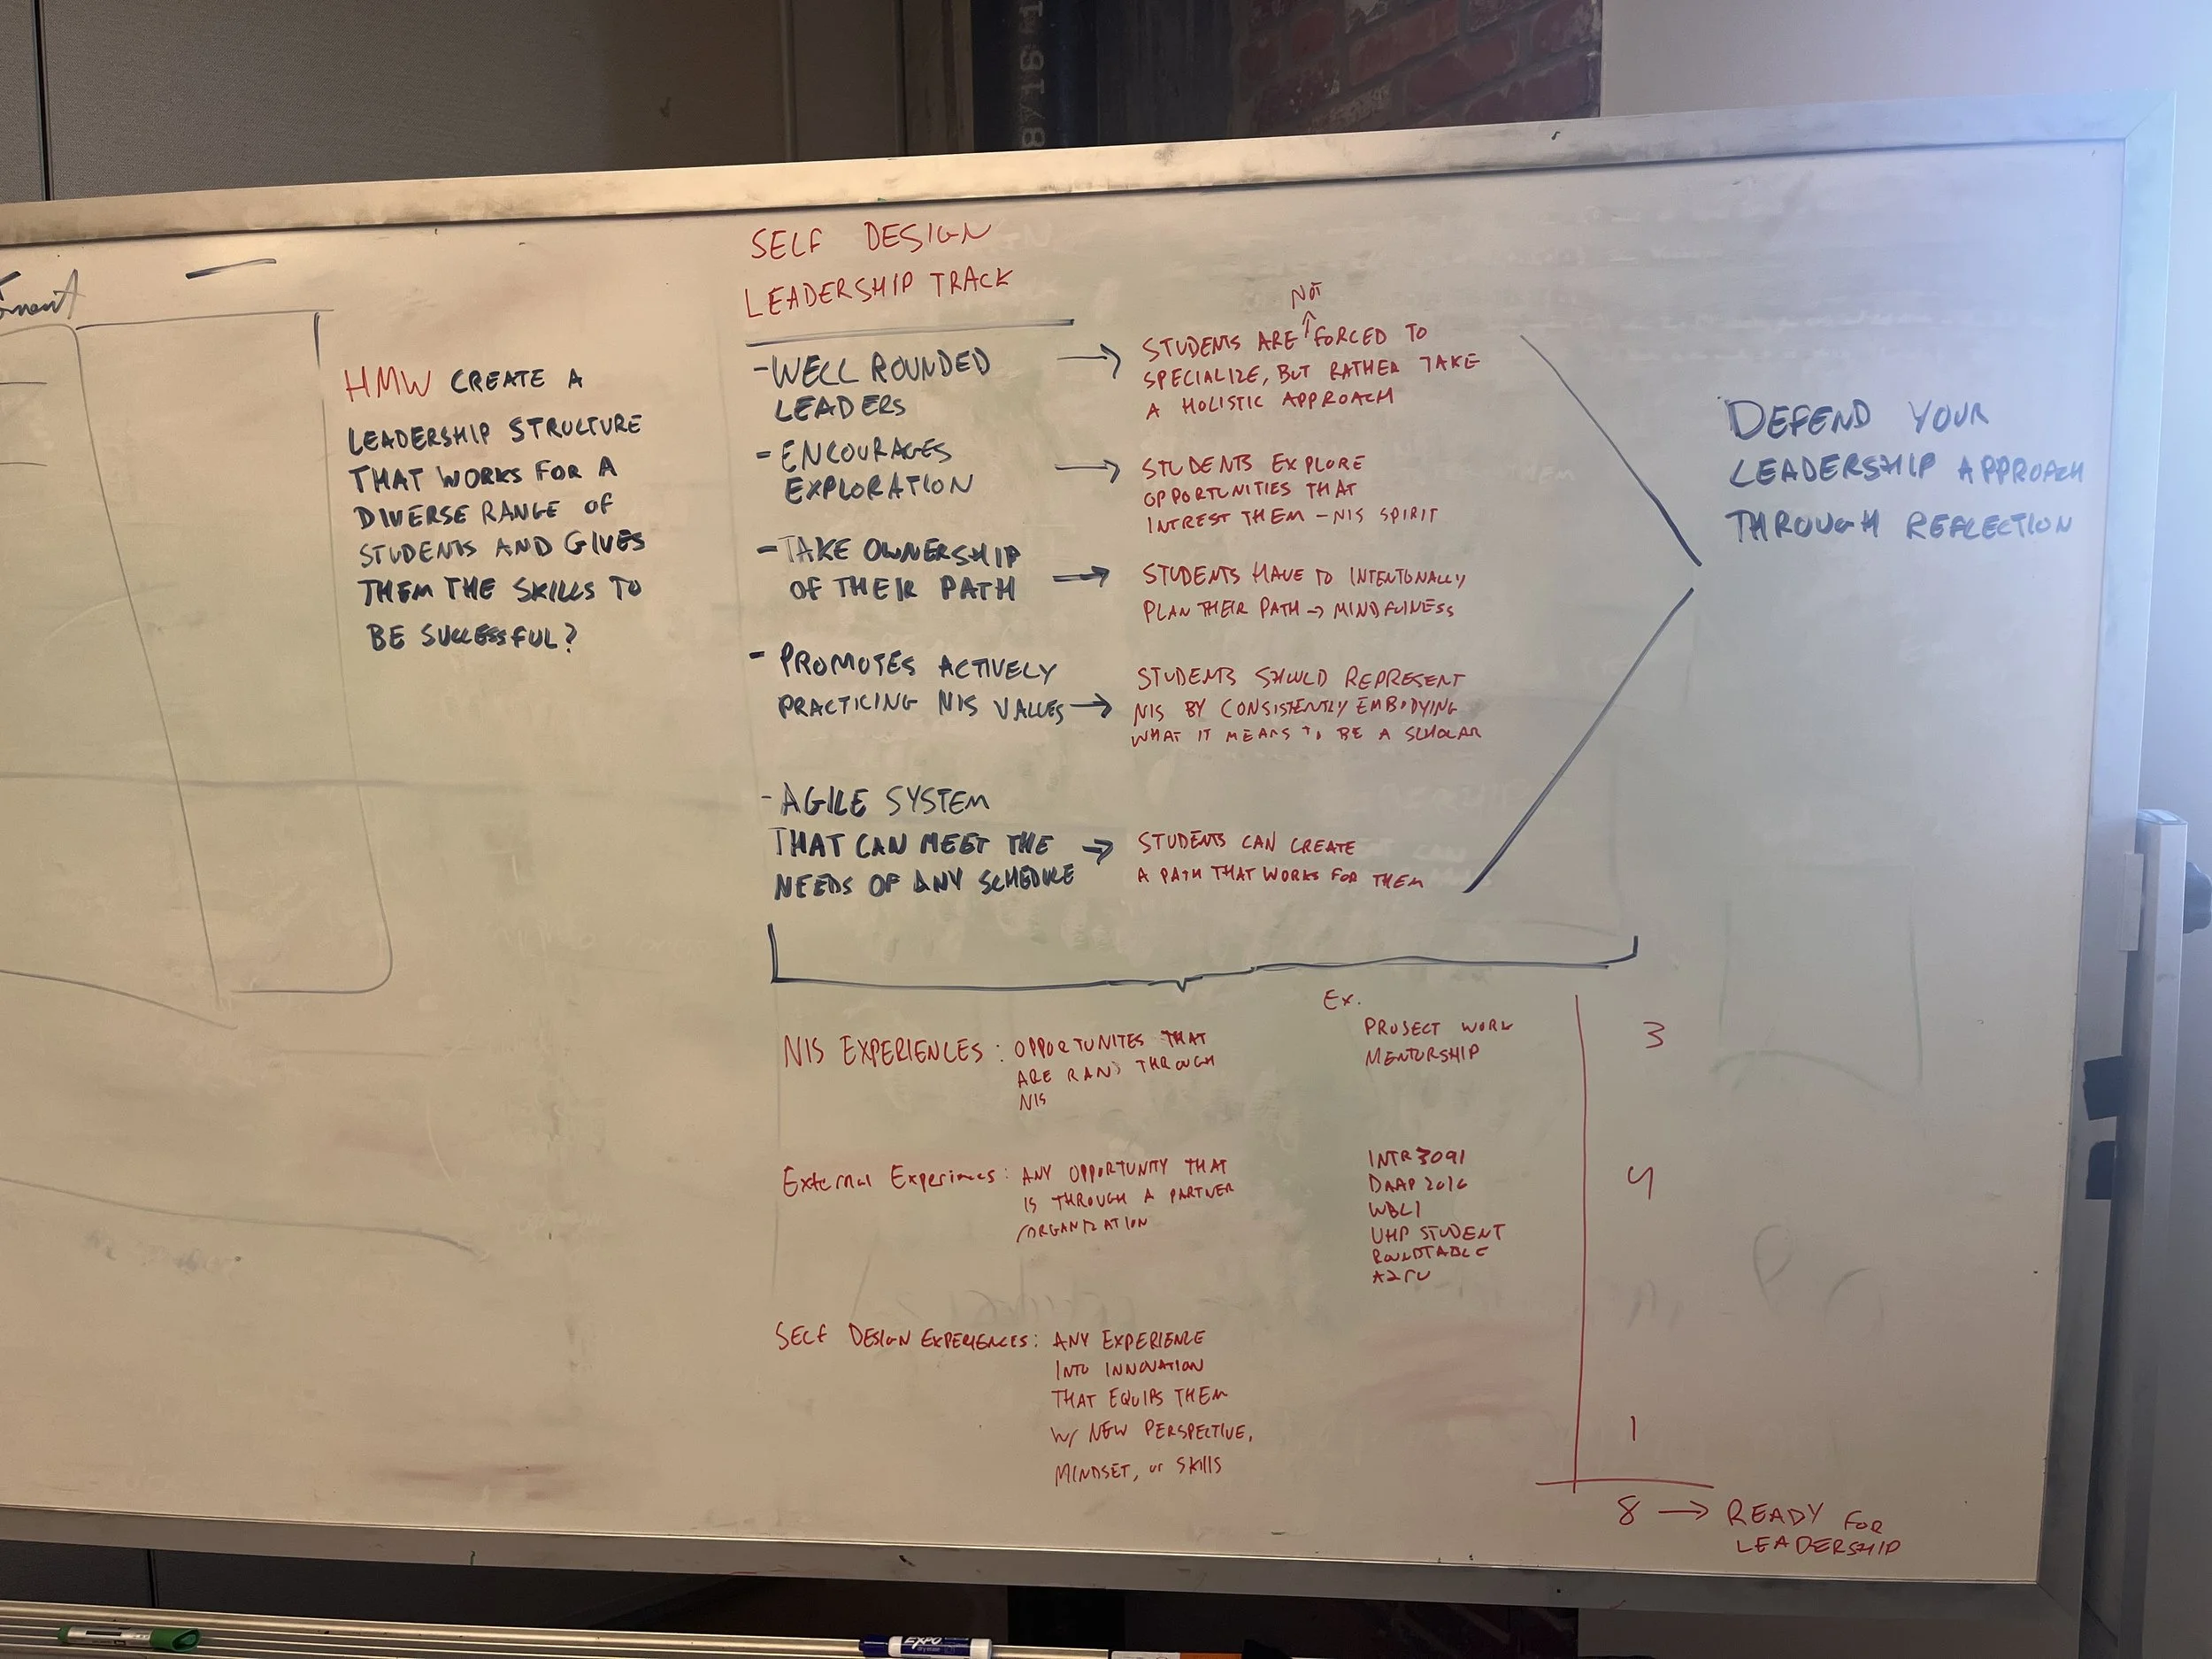 HMW CREATE A
LEADERSHIP STRUCTURE
THAT WORKS FOR A
DIVERSE RANGE OF
STUDENTS AND GIVES
THEM THE SKILLS TO
BE SUCCESSFUL?
SELF DESIGN
LEADERSHIP TRACK
-WELL ROUNDED
LEADERS
- ENCOURAGES
EXPLORATION
-TAKE OWNERSHIP
OF THEIR PATH
- PROMOTES ACTIVELY
PRACTICING NIS VALUES
- AGILE SYSTEM
THAT CAN MEET THE
NEEDS OF ANY SCHEDULE
NOT
STUDENTS ARE FORCED TO
SPECIALIZE, BUT RATHER TAKE
A HOLISTIC APPROACH
STUDENTS EXPLORE
OPPORTUNITIES THAT
INTREST THEM - NIS SPIRIT
STUDENTS HAVE TO INTENTONALLY
PLAN THEIR PATH → MINDFULNESS
STUDENTS SHOULD REPRESENT
NIS BY CONSISTENTLY EMBODYING
WHAT IT MEANS TO BE A SCHOLAR
STUDENTS CAN CREATE
A PATH THAT WORKS FOR THEM
DEFEND YOUR
LEADERSHIP APPROACH
THROUGH REFLECTION
NIS EXPERIENCES: OPPORTUNITES THAT
ARE RAN THROUGH
NIS
Ex.
PROJECT WORK
MENTORSHIP
3
External Experiences: ANY OPPORTUNITY THAT
IS THROUGH A PARTNER
ORGANIZATION
INTR3091
DAAP2016
WBL1
UHP STUDENT
ROUNDTABLE
A2RU
4
SELF DESIGN EXPERIENCES: ANY EXPERIENCE
INTO INNOVATION
THAT EQUIPS THEM
W/ NEW PERSPECTIVE,
MINDSET, or SKILLS
1
8 → READY FOR
LEADERSHIP
EXPO